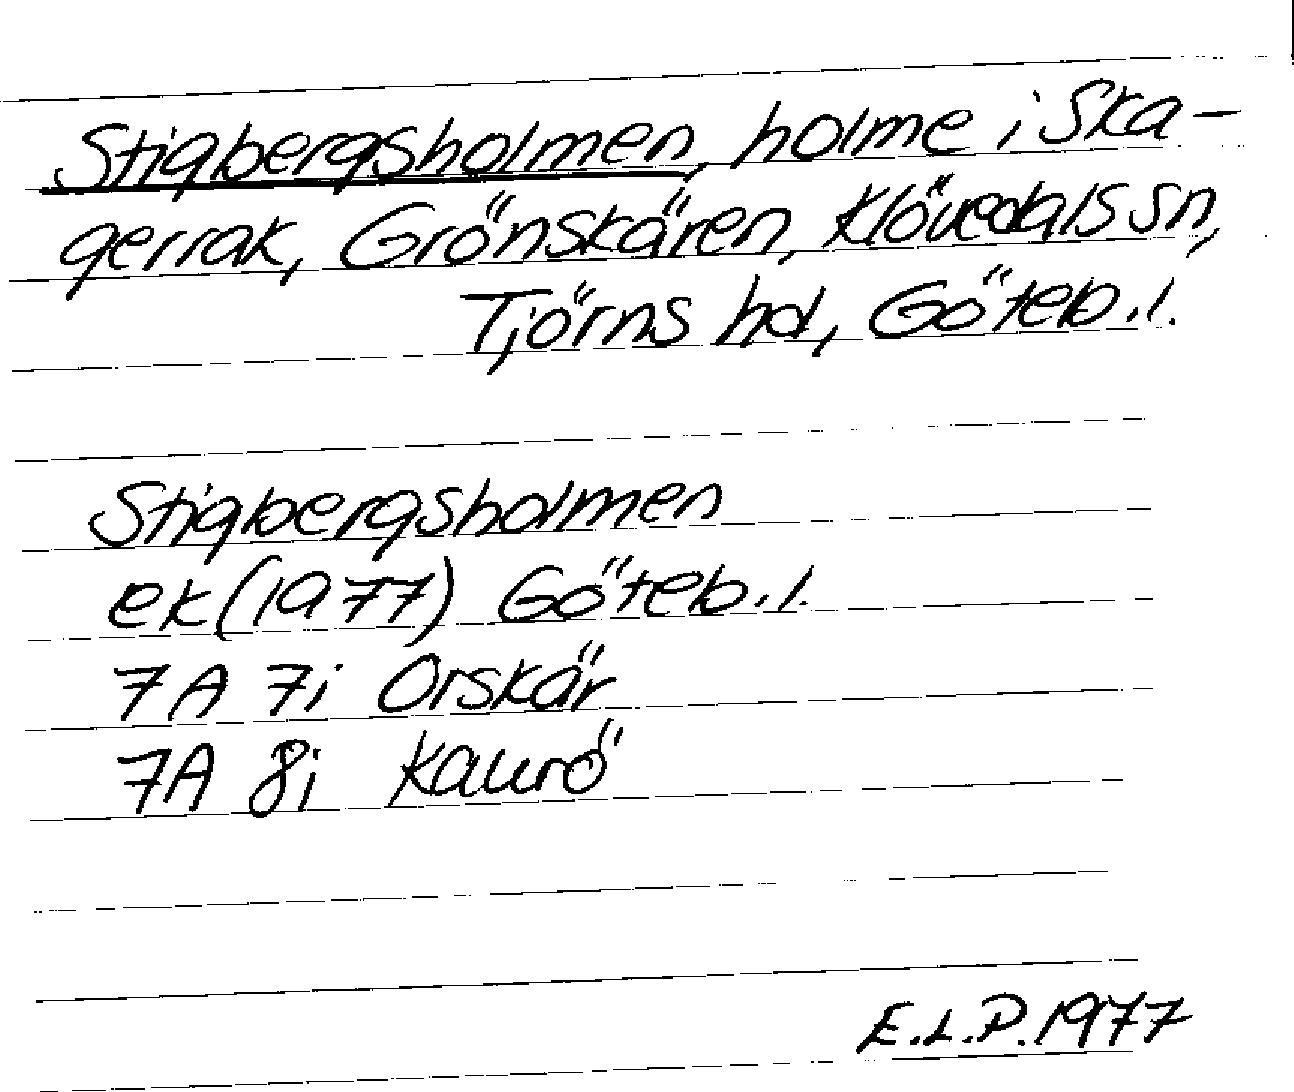 Stigbergsholmen, holme i Ska-
gerrak, Grönskären, Klövedals sn,
Tjörns hd, Göteb.l.
Stigbergsholmen
ek (1977) Göteb.l.
7A 7i Orskär
7A 8i Kaurö
E.L.P. 1977